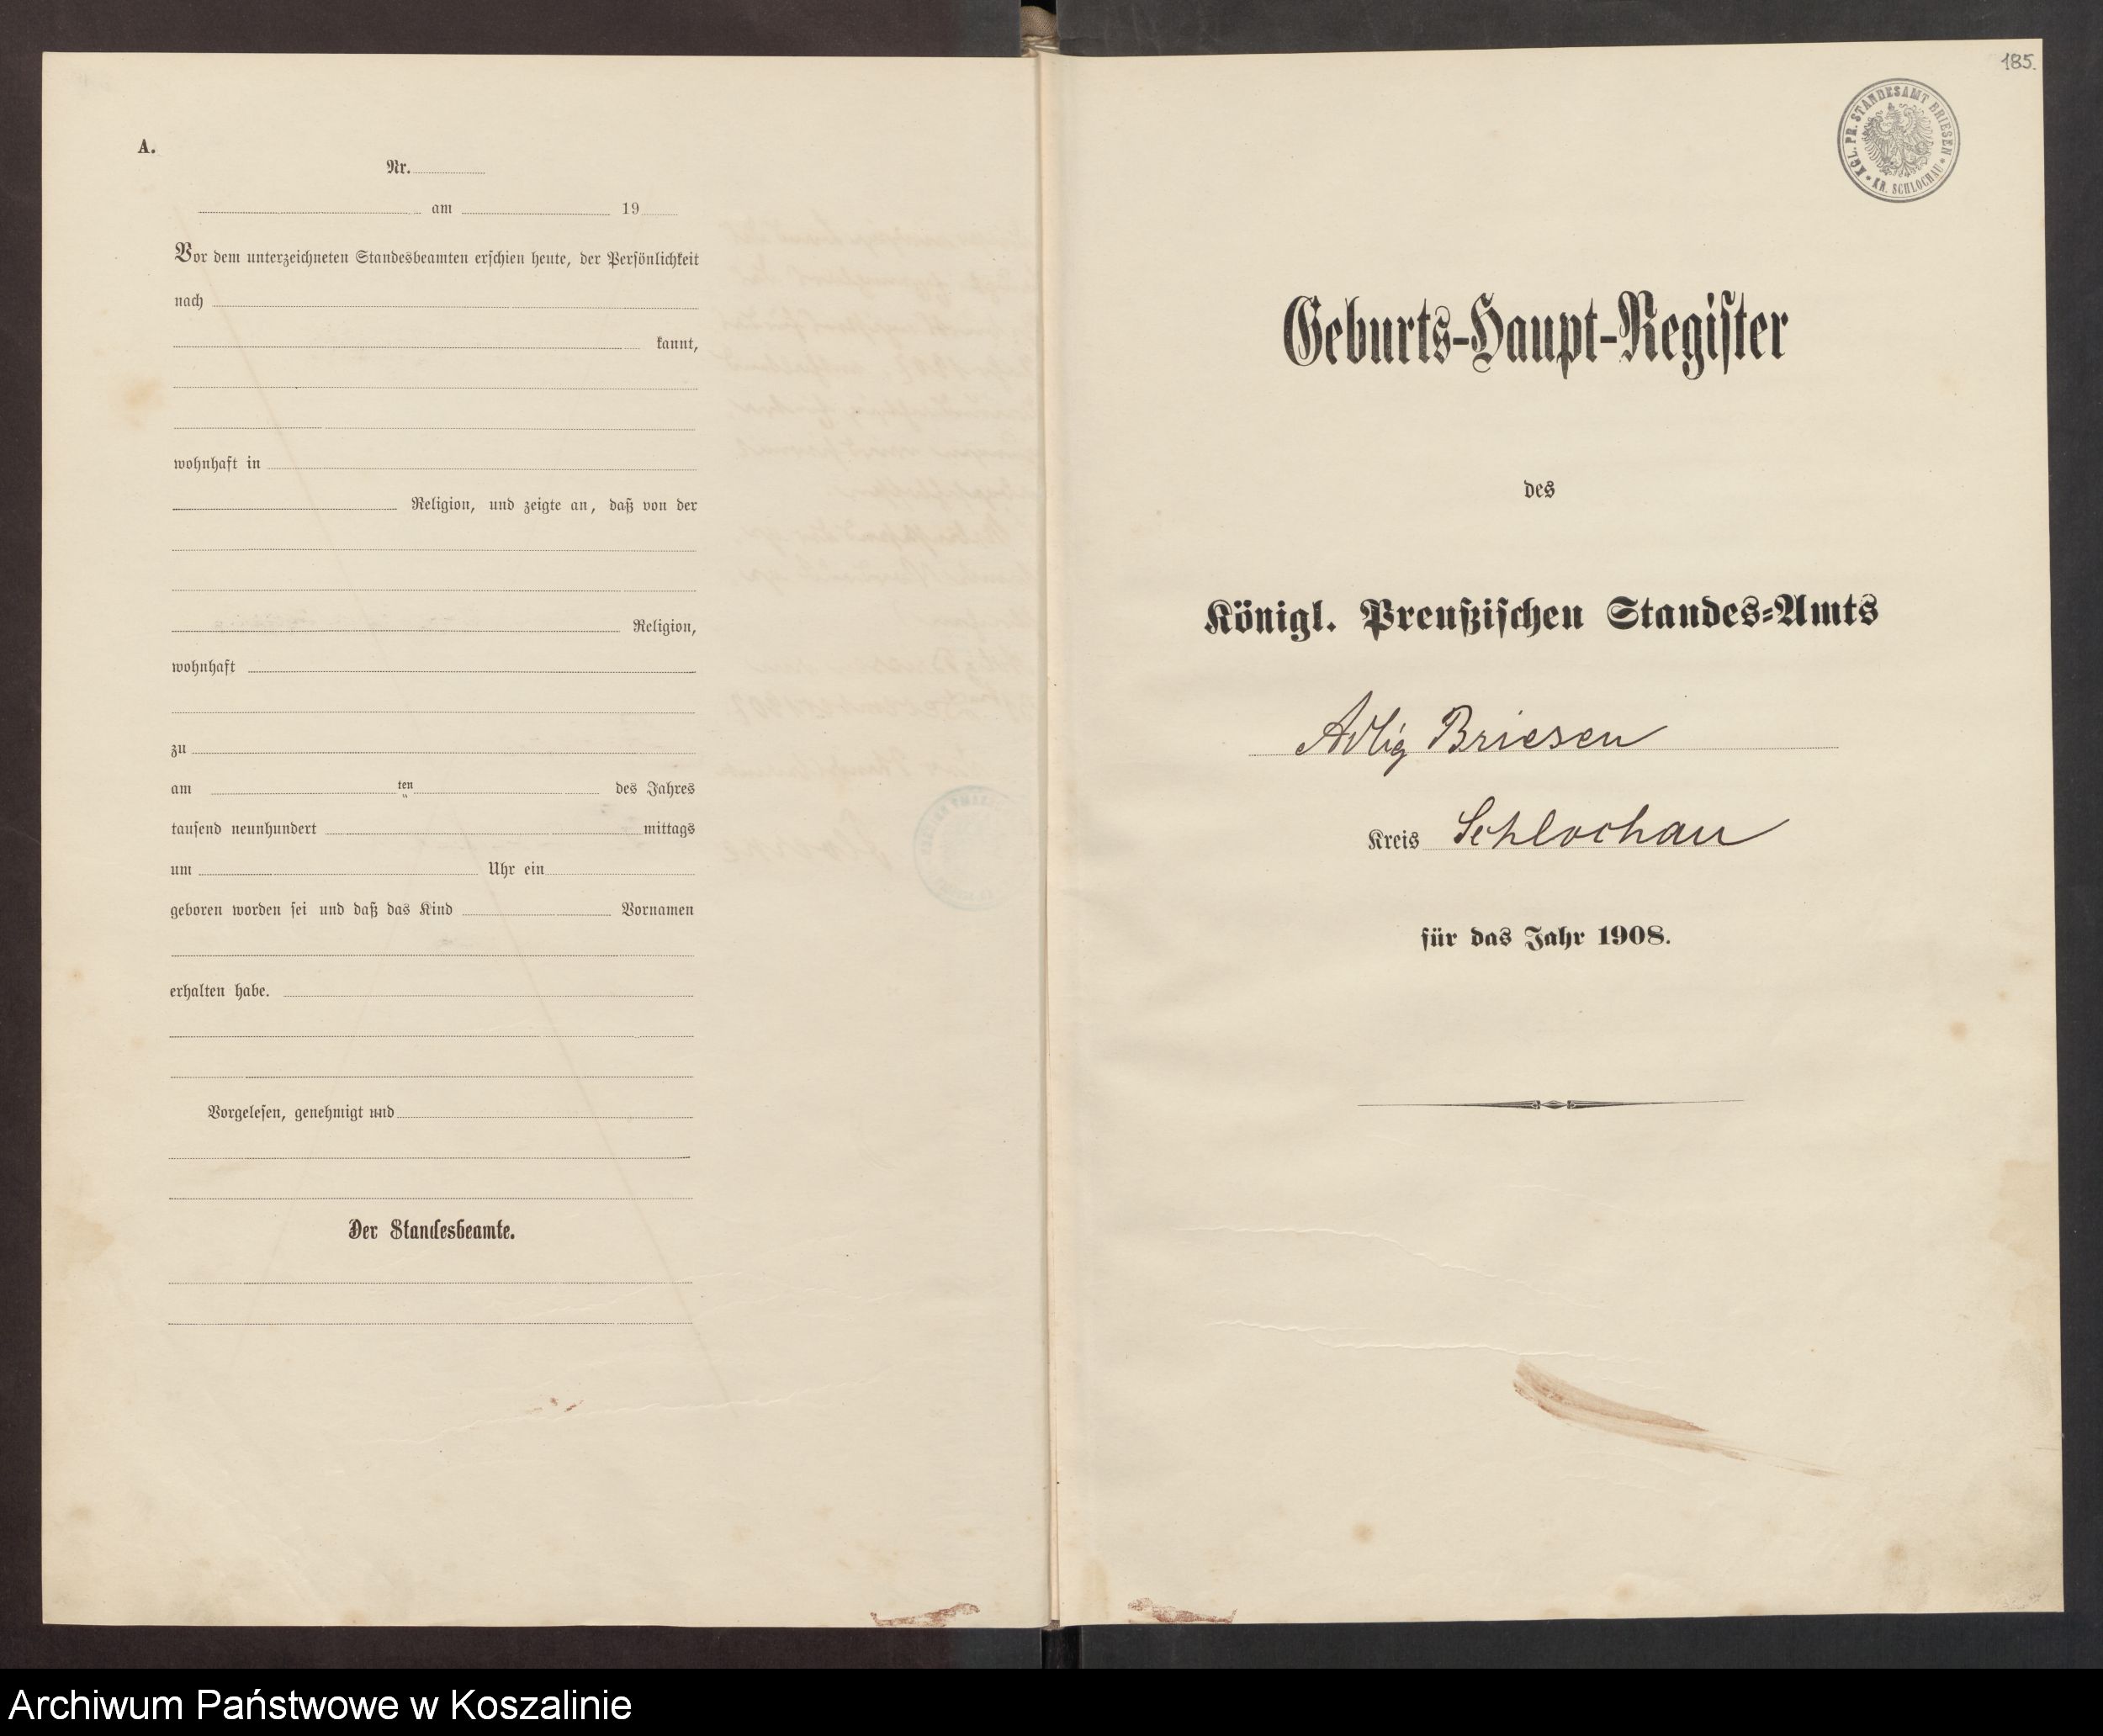 A.
Nr.
am 19
Vor dem unterzeichneten Standesbeamten erschien heute, der Persönlichkeit
nach
kannt,
wohnhaft in
Religion, und zeigte an, daß von der
Religion,
wohnhaft
zu
am ten des Jahres
tausend neunhundert mittags
um Uhr ein
geboren worden sei und daß das Kind Vornamen
erhalten habe.
Vorgelesen, genehmigt und
Der Standesbeamte.
185.
KGL. PR. STANDESAMT BRIESEN
* KR. SCHLOCHAU *
Geburts-Haupt-Register
des
Königl. Preußischen Standes-Amts
Adlig Briesen
Kreis Schlochau
für das Jahr 1908.
Archiwum Państwowe w Koszalinie